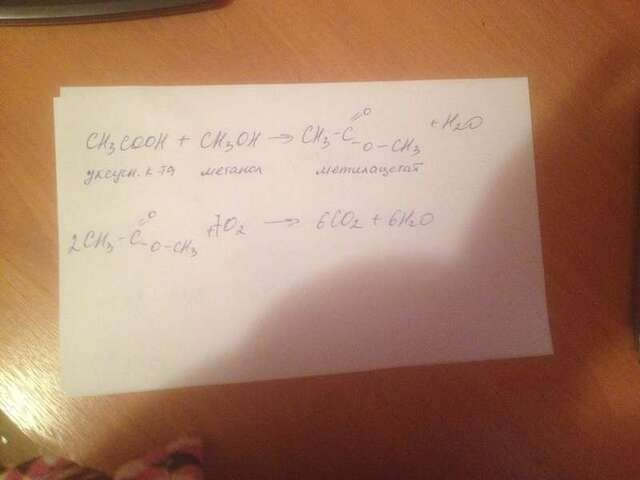 CH3COOH + CH3OH → CH3-C=O-O-CH3 + H2O
уксусн. к-та метанол метилацетат
2CH3-C=O-O-CH3 + 7O2 → 6CO2 + 6H2O